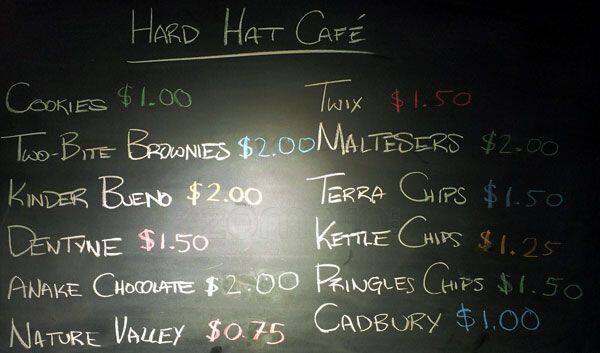 HARD HAT CAFÉ
COOKIES $1.00
TWO-BITE BROWNIES $2.00
KINDER BUENO $2.00
DENTYNE $1.50
ANAKE CHOCOLATE $2.00
NATURE VALLEY $0.75
TWIX $1.50
MALTESERS $2.00
TERRA CHIPS $1.50
KETTLE CHIPS $1.25
PRINGLES CHIPS $1.50
CADBURY $1.00